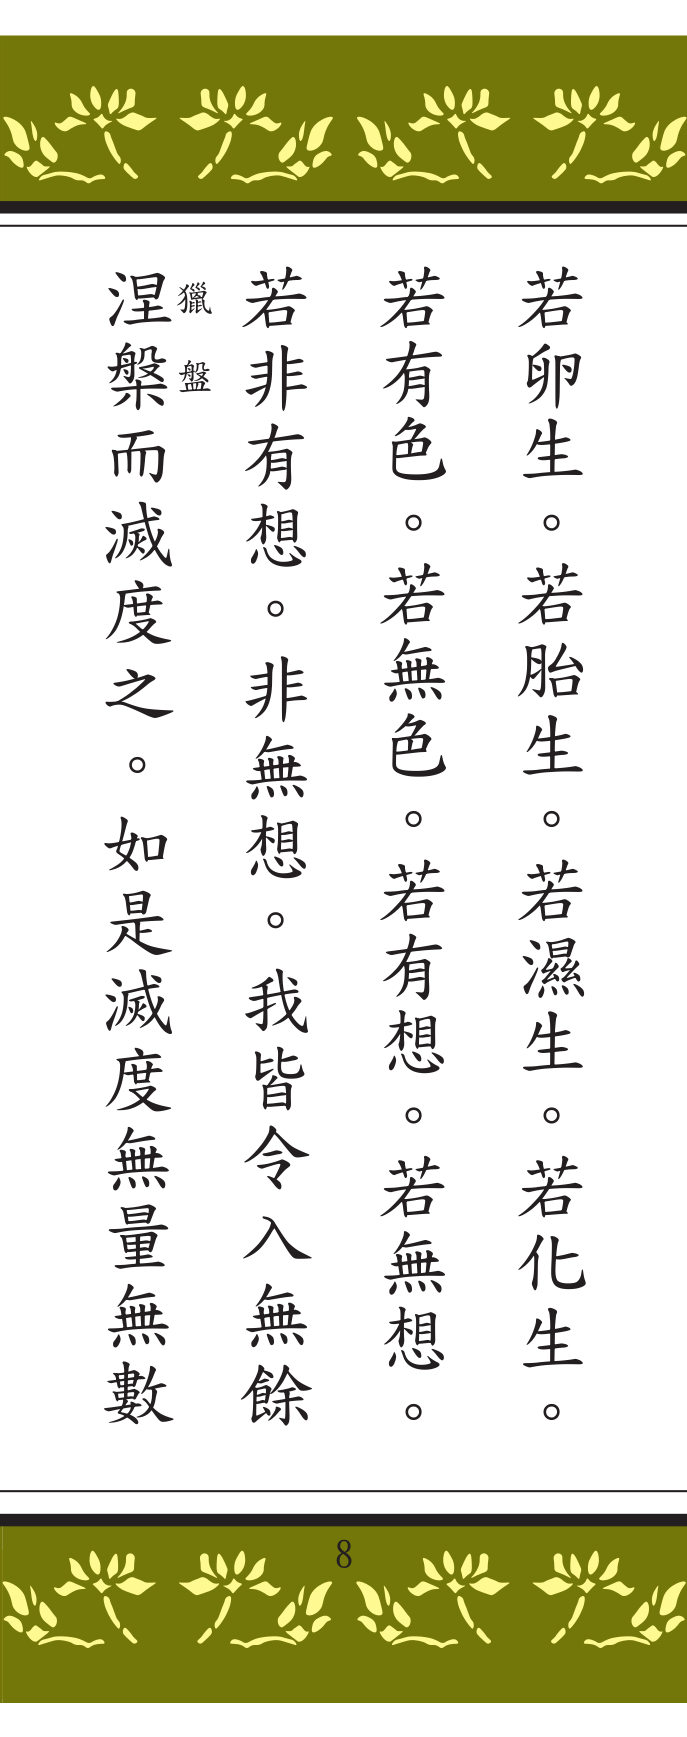 若卵生。若胎生。若濕生。若化生。
若有色。若無色。若有想。若無想。
若非有想。非無想。我皆令入無餘
獵盤
涅槃而滅度之。如是滅度無量無數
8